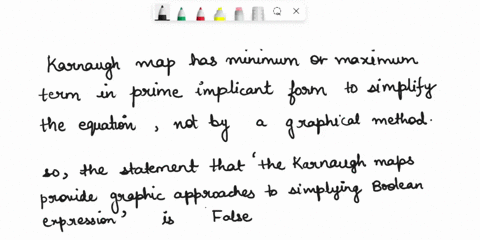 Karnaugh map has minimum or maximum
term in prime implicant form to simplify
the equation, not by a graphical method.
so, the statement that 'the Karnaugh maps
provide graphic approaches to simplying Boolean
expression' is False